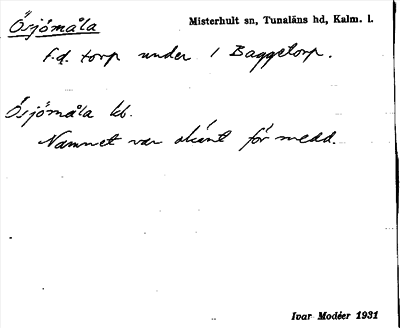 Ösjömåla
Misterhult sn, Tunaläns hd, Kalm. l.
f.d. torp under 1 Baggetorp.
Ösjömåla kb.
Namnet var okänt för medd.
Ivar Modéer 1931